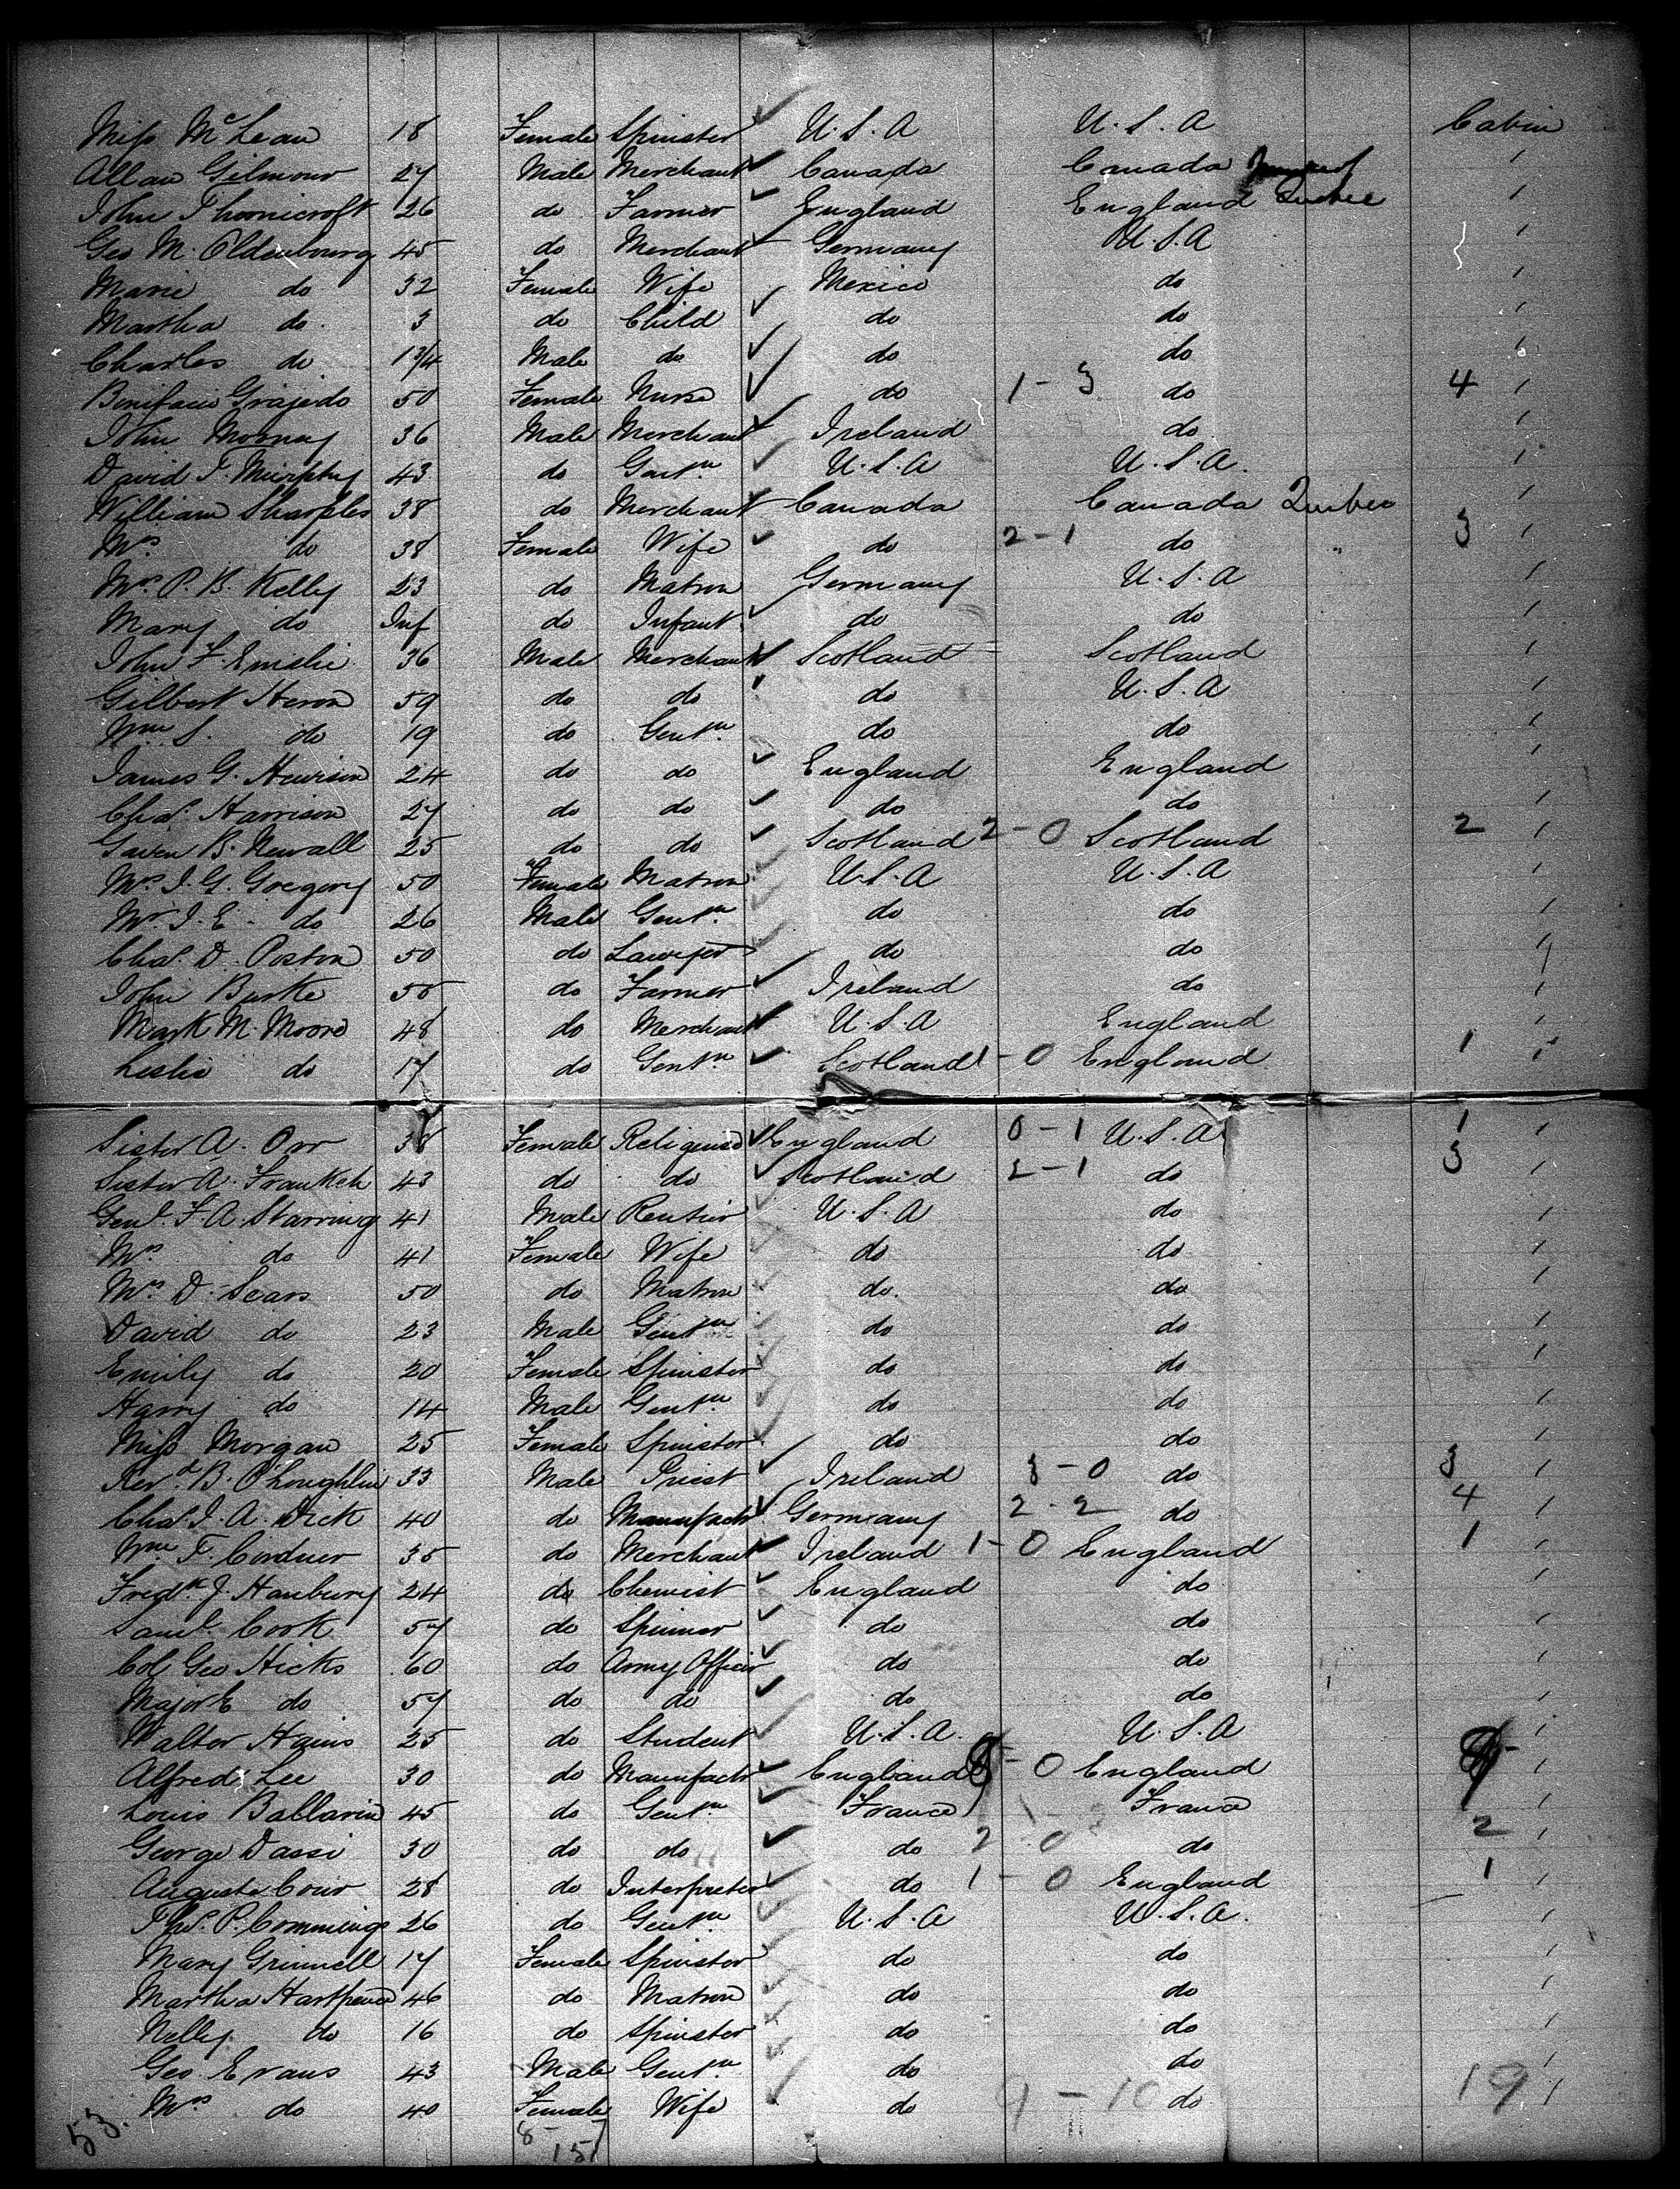 Miss McLean 18 Female Spinster U.S.A U.S.A Cabin
Allan Gilmour 27 Male Merchant Canada Canada
John Thornicroft 26 do Farmer England England Quebec
Geo M. Oldenbourg 45 do Merchant Germany U.S.A
Marie do 32 Female Wife Mexico do
Martha do 3 do Child do do
Charles do 1 3/4 Male do do do
Bonifacio Grajedo 50 Female Nurse do 1-3 do 4
John Mooney 36 Male Merchant Ireland do
David T. Murphy 43 do Gentn U.S.A U.S.A.
William Sharples 38 do Merchant Canada Canada Quebec
Mrs do 38 Female Wife do 2-1 do " 3
Mrs P. B. Kelly 23 do Matron Germany U.S.A
Mary do Inf do Infant do do
John F. Emslie 36 Male Merchant Scotland Scotland
Gilbert Heron 59 do do do U.S.A
Wm S. do 19 do Gentn do do
James G. Hewison 24 do do England England
Chas. Harrison 27 do do do do
Gawen B. Newall 25 do do Scotland 2-0 Scotland 2
Mrs J. G. Gregory 50 Female Matron U.S.A U.S.A
Mr J. E. do 26 Male Gentn do do
Chas. D. Poston 50 do Lawyer do do
John Burke 50 do Farmer Ireland do
Mark M. Moore 48 do Merchant U.S.A England
Leslie do 17 do Gentn Scotland 1-0 England 1
Sister A. Orr 38 Female Religeuse England 0-1 U.S.A 1
Sister A. Frankch 43 do do Scotland 2-1 do 3
Genl. F. A. Starring 41 Male Rentier U.S.A do
Mrs do 41 Female Wife do do
Mrs D. Sears 50 do Matron do. do
David do 23 Male Gentn do do
Emily do 20 Female Spinster do do
Harry do 14 Male Gentn do do
Miss Morgan 25 Female Spinster do do
Revd. B. O'Loughlin 33 Male Priest Ireland 3-0 do 3
Chas. J. A. Dick 40 do Manufactr Germany 2-2 do 4
Wm T. Cordner 35 do Merchant Ireland 1-0 England 1
Fredk. J. Hanbury 24 do Chemist England do
Saml. Cook 57 do Spinner do do
Col Geo Hicks 60 do Army Officer do do
Major E do 57 do do do do
Walter Hains 25 do Student U.S.A. U.S.A
Alfred Lee 30 do Manufactr England - 0 England
Louis Ballarin 45 do Gentn France France
George Dassi 30 do do do 2 0 do 2
Auguste Cour 28 do Interpreter do 1-0 England 1
Thos. P. Commings 26 do Gentn U.S.A U.S.A.
Mary Grinnell 17 Female Spinster do do
Martha Hartpence 46 do Matron do do
Nelly do 16 do Spinster do do
Geo. Evans 43 Male Gentn do do
Mrs do 40 Female Wife do 9-10 do 19
53.
8-
157